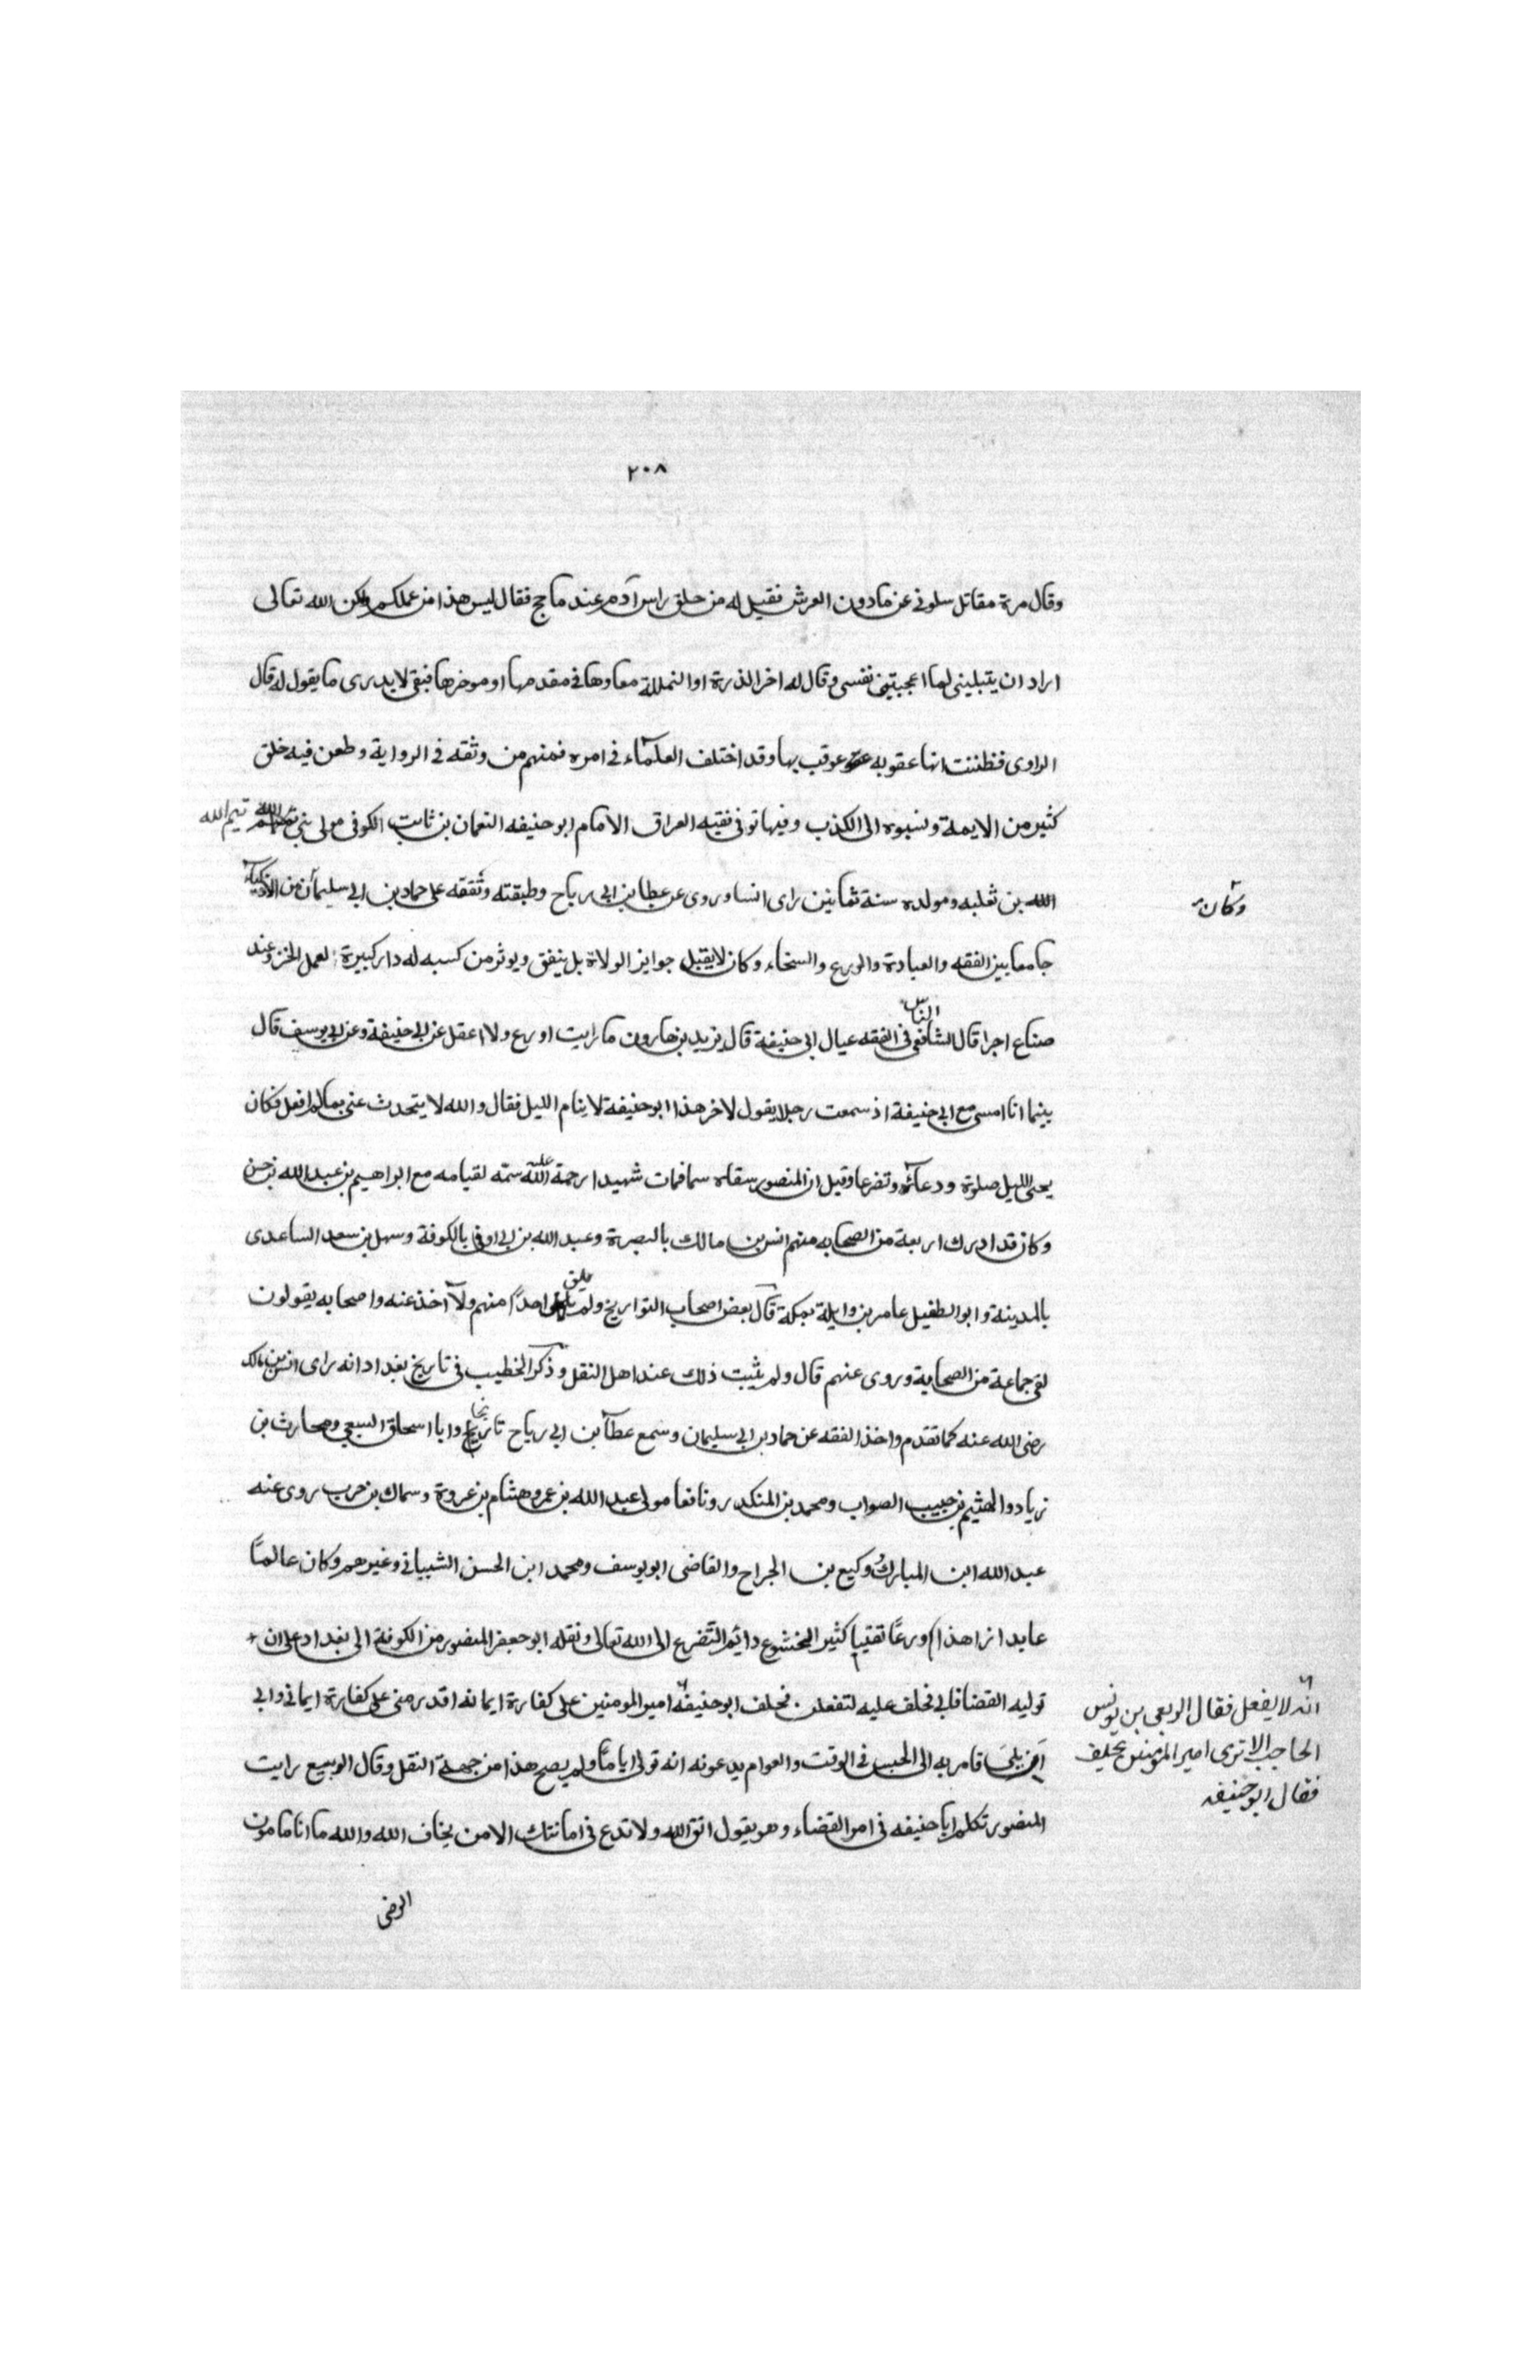 ٢٠٨
وقال مرة مقاتل سلوني عن مادون العرش فقيل له من حلق راس آدم عند ماحج فقال ليس هذا من عملكم ولكن الله تعالى
اراد ان يتبليني لما اعجبتني نفسي وقال له اخر الذرة او النملة معاوها في مقدمها او موخرها فبقى لا يدرى ما يقول له قال
الراوى فظننت انها عقوبه عوقب بها وقد اختلف العلمآء في امره فمنهم من وثقه في الرواية وطعن فيه خلق
كثير من الايمة ونسبوه الى الكذب وفيها توفى فقيه العراق الامام ابو حنيفه النعمان بن ثابت الكوفى مولى بنى تيم الله
الله بن ثعلبه ومولده سنة ثمانين راى انسا وروى عن عطا بن ابى رياح وطبقته وتفقه على حماد بن ابى سليمان من الاذكيآء
وكان
جامعا بين الفقه والعبادة والورع والسخاء وكان لا يقبل جوايز الولاة بل ينفق ويوثر من كسبه له دار كبيرة لعمل الخز وعند
صناع اجرا قال الشافعى الناس فى الفقه عيال ابى حنيفة قال يزيد بن هارون ما رايت اورع ولا اعقل عن ابى حنيفة وعن ابى يوسف قال
بينما انا امسى مع ابى حنيفة اذ سمعت رجلا يقول لاخر هذا ابو حنيفة لا ينام الليل فقال والله لا يتحدث عنى بما لم افعل فكان
يحيى الليل صلوة ودعآء وتضرعا وقيل ان المنصور سقاه سما فمات شهيدا رحمة الله عليه سمّه لقيامه مع ابراهيم بن عبد الله بن حسن
وكان قد ادرك اربعة من الصحابه منهم انس بن مالك بالبصرة وعبد الله بن ابى اوفى بالكوفة وسهل بن سعد الساعدى
بالمدينة وابو الطفيل عامر بن وايلة بمكة قال بعض اصحاب التواريخ ولم يلق احدًا منهم ولا اخذ عنه واصحابه يقولون
لقى جماعة من الصحابة وروى عنهم قال ولم يثبت ذلك عند اهل النقل وذكر الخطيب فى تاريخ بغداد انه راى انس بن مالك
رضى الله عنه كما تقدم واخذ الفقه عن حماد بن ابى سليمان وسمع عطآ بن ابى رياح وابا اسحاق السبعى ومحارث بن
زياد والهثيم بن حبيب الصواب ومحمد بن المنكدر ونافعا مولى عبد الله بن عمر وهشام بن عروة وسماك بن حرب روى عنه
عبد الله ابن المبارك وكيع بن الجراح والقاضى ابو يوسف ومحمد ابن الحسن الشيبانى وغيرهم وكان عالمًا
عابدا زاهدا ورعًا تقيا كثير الخشوع دايم التضرع الى الله تعالى ونقله ابو جعفر المنصور من الكوفة الى بغداد على ان
توليه القضا فابى فحلف عليه لتفعلن فحلف ابو حنيفه امير المومنين على كفارة ايمانه اقدر منى على كفارة ايمانى وابى
انه لا يفعل فقال الربعى بن يونس
الحاجب الا ترى امير المؤمنين يحلف
فقال ابو حنيفه
ان يلى فامر به الى الحبس فى الوقت والعوام يدعونه انه تولى اياما ولم يصح هذا من جهة النقل وقال الربيع رايت
المنصور تكلم ابا حنيفه فى امر القضاء وهو يقول اتق الله ولا تدع فى امانتك الا من يخاف الله والله ما انا مامون
الرضى